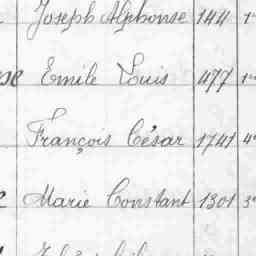 Joseph Alphonse 144
Emile Louis 477
François César 1741
Marie Constant 1301